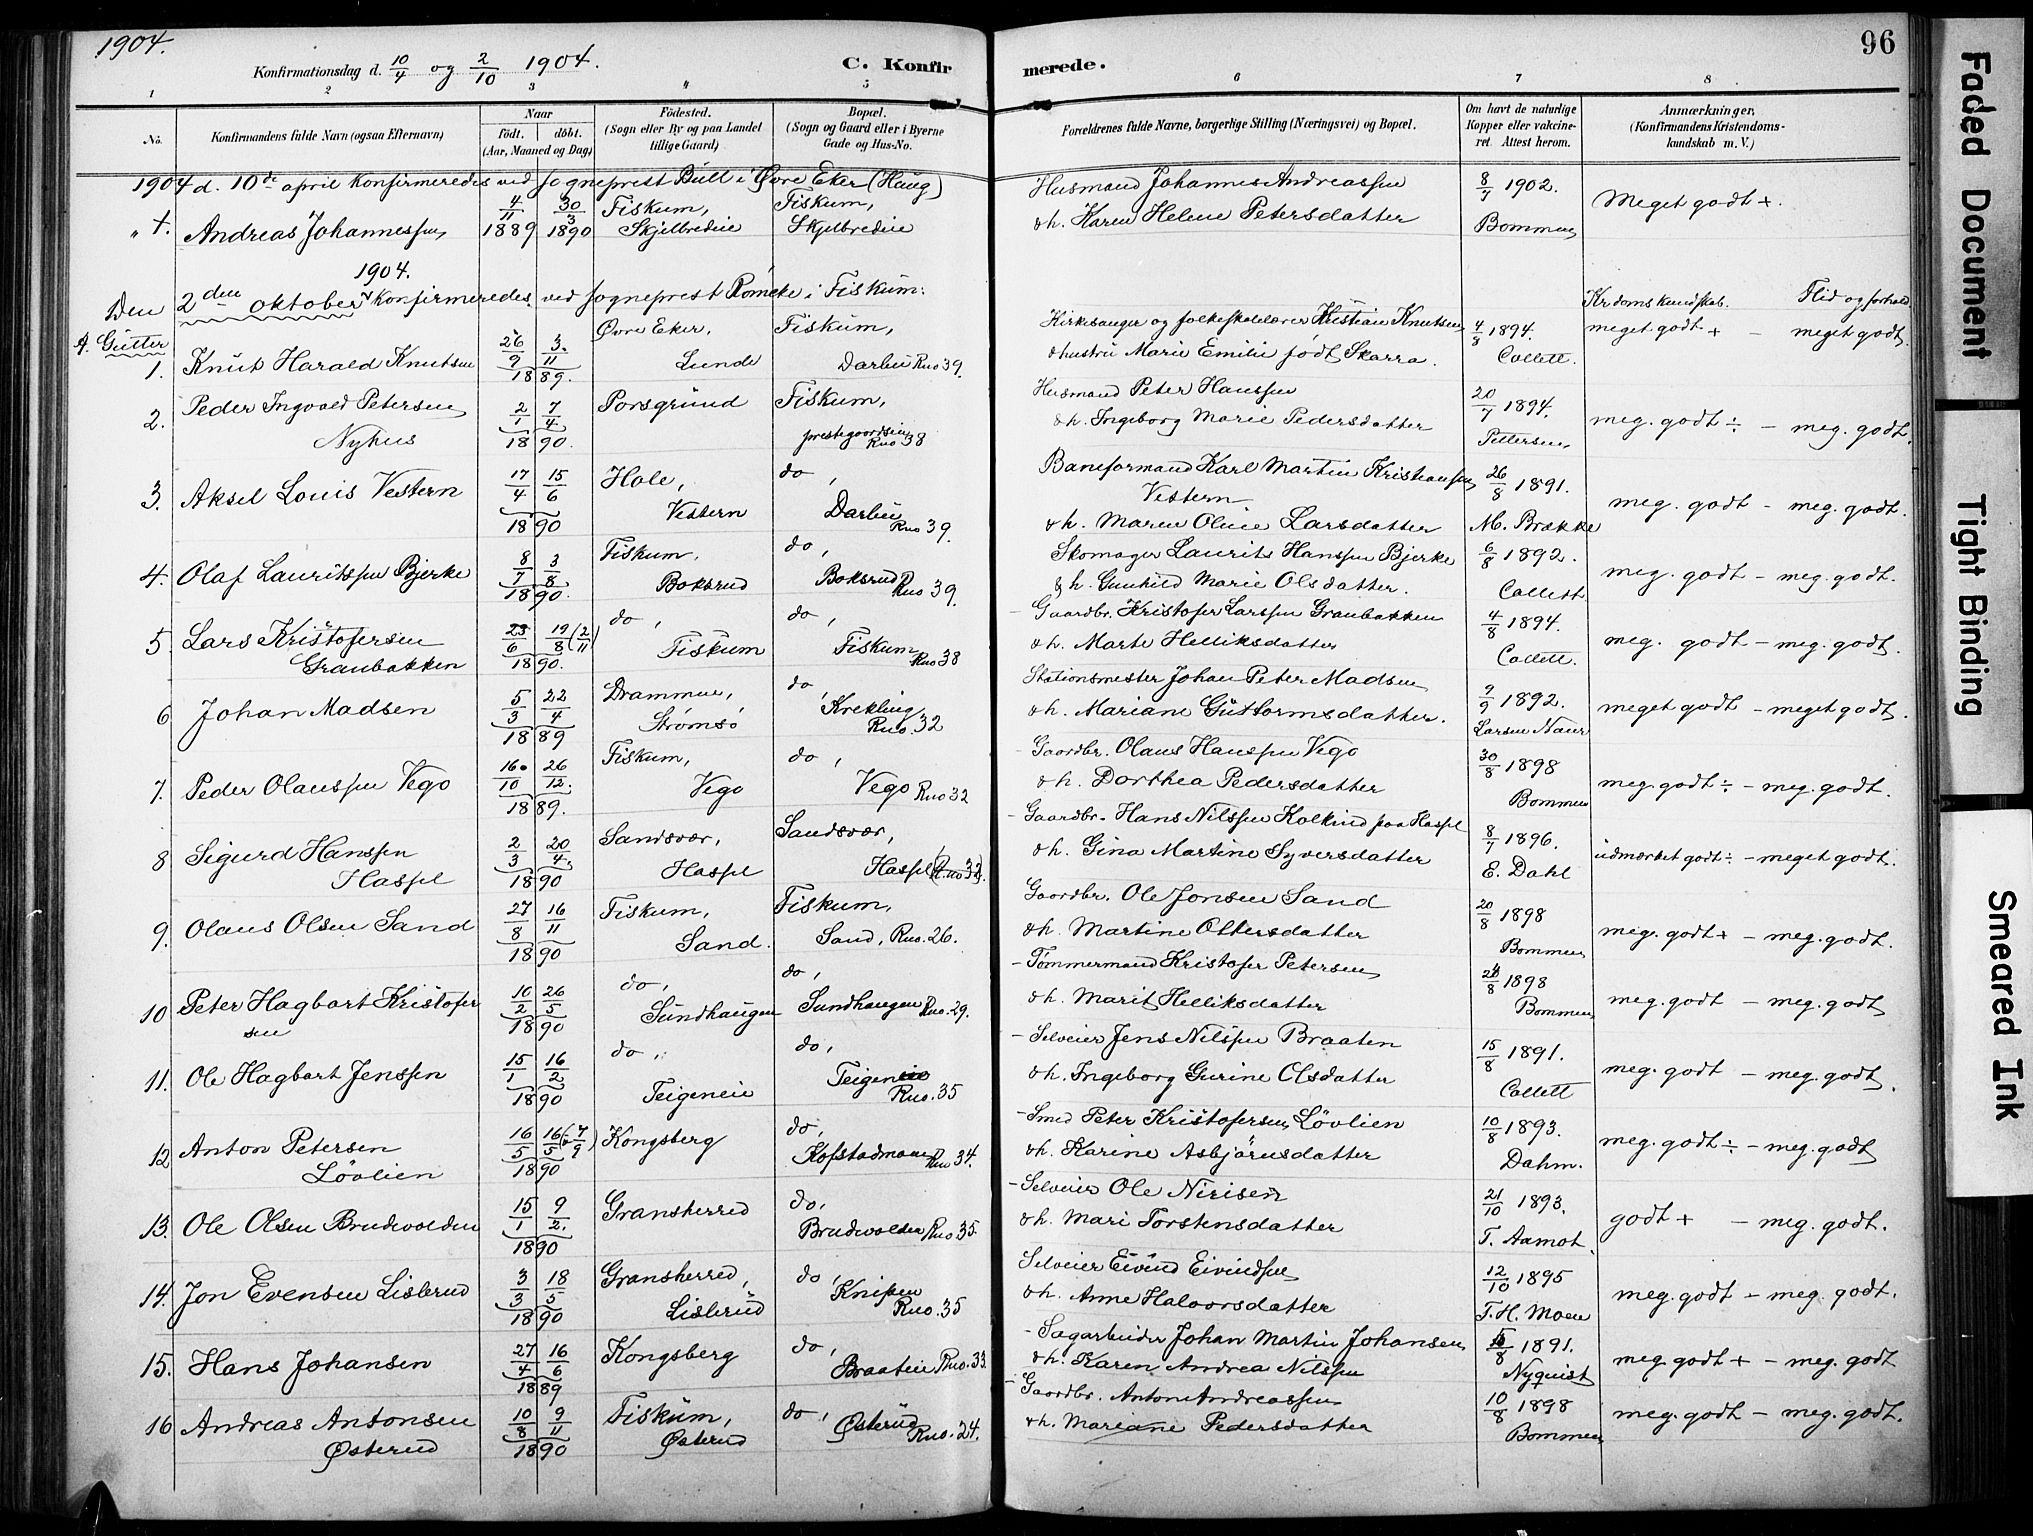 1904.
Konfirmationsdag d. 10/4 og 2/10 1904.
C. Konfirmerede.
96
1 2 3 4 5 6 7 8
No.
Konfirmandens fulde Navn (ogsaa Efternavn)
Naar
födt. döbt.
(Aar, Maaned og Dag)
Födested.
(Sogn eller By og paa Landet tillige Gaard)
Bopæl.
(Sogn og Gaard eller i Byerne Gade og Hus-No.
Forældrenes fulde Navne, borgerlige Stilling (Næringsvei) og Bopæl.
Om havt de naturlige Kopper eller vakcineret. Attest herom.
Anmærkninger,
(Konfirmandens Kristendomskundskab m. V.)
1904 d. 10de april Konfirmeredes ved sogneprest Bull i Øvre Eker (Haug)
Andreas Johannessen 4/11 1889 30/3 1890 Fiskum, Skjelbredeie Fiskum, Skjelbredeie Husmand Johannes Andreassen &h. Karen Helene Petersdatter 8/7 1902. Bommen Meget godt +.
1904.
Den 2den oktober Konfirmeredes ved sogneprest Römcke i Fiskum:
Krdomskundskab. Flid og forhold
A. Gutter
1. Knut Harald Knutsen 26/9 3/11 1889. Øvre Eker, Lunde Fiskum, Darbu Rno 39. Kirkesanger og folkeskolelærer Kristian Knutsen &hustru Marie Emilie født Skarra. 4/8 1894. Collett. meget godt + - meget godt.
2. Peder Ingvald Petersen Nyhus 2/1 7/4 1890. Porsgrund Fiskum, prestegaardseie Rno 38 Husmand Peter Hanssen &h. Ingeborg Marie Pedersdatter 20/7 1894. Pettersen, meg. godt ÷ - meg. godt.
3. Aksel Louis Vestern 17/4 15/6 1890 Hole, Vestern do, Darbu Rno 39. Baneformand Karl Martin Kristiansen Vestern &h. Maren Oline Larsdatter 26/8 1891. M. Brække meg. godt - meg. godt.
4. Olaf Lauritssen Bjerke 8/7 3/8 1890. Fiskum, Boksrud do, Boksrud Rno 39. Skomager Laurits Hanssen Bjerke &h. Gunhild Marie Olsdatter. 6/8 1892. Collett. meg. godt - meg. godt.
5. Lars Kristofersen Granbakken 23/6 19/8 (2/11) 1890. do, Fiskum do, Fiskum Rno 38 Gaardbr. Kristofer Larssen Granbakken &h. Marte Helliksdatter 4/8 1894. Collett. meg. godt - meg. godt.
6. Johan Madsen 5/3 22/4 1889 Drammen, Strømsö do, Krekling Rno. 32 Stationsmester Johan Peter Madsen &h. Mariane Guttormsdatter. 9/9 1892. Larsen Naur meget godt - meget godt.
7. Peder Olaussen Vego 16/10 26/12. 1889. Fiskum, Vego do, Vego Rno 32 Gaardbr. Olaus Hanssen Vego &h. Dorthea Pedersdatter 30/8 1898 Bommen meg. godt ÷ - meg. godt.
8 Sigurd Hanssen Haspel 2/3 20/4 1890 Sandsvær, Haspel Sandsvær, Haspel (R.no 32). Gaardbr. Hans Nilssen Kolkind paa Haspl &h. Gina Martine Syversdatter 8/7 1896. E. Dahl udmærket godt ÷ - meget godt.
9. Olaus Olsen Sand 27/8 16/11 1890 Fiskum, Sand. Fiskum, Sand, Rno. 26. Gaardbr. Ole Jonsen Sand &h. Martine Ottersdatter 20/8 1898 Bommen meg. godt + - meg. godt.
10 Peter Hagbart Kristofersen 10/2 26/5 1890 do, Sundhaugen do, Sundhaugen Rno. 29. Tømmermand Kristofer Petersen &h. Marit Helliksdatter 1898 Bommen meg. godt - meg. godt
11. Ole Hagbart Jenssen 15/1 16/2 1890 do, Teigeneie do, Teigen Rno. 35 Selveier Jens Nilssen Braaten &h. Ingeborg Gurine Olsdatter 15/8 1891. Collett meg. godt - meg. godt.
12 Anton Petersen Lövlien 16/5 16/5 (7/9) 1890 Kongsberg do, Kofstadmoen Rno 34. Smed Peter Kristofersen Lövlien &h. Karine Asbjörnsdatter 10/8 1893. Dahm. meg. godt ÷ - meg. godt
13. Ole Olsen Brudevolden 15/1 9/2. 1890 Gransherred do, Brudevolden Rno 35. Selveier Ole Nirisen &h. Mari Torstensdatter 21/10 1893. T. Aamot. godt + - meg. godt.
14. Jon Evensen Lislerud 3/3 18/5 1890 Gransherred, Lislerud do, Knipen Rno. 35 Selveier Eivind Eivindsen &h. Anne Halvorsdatter 12/10 1895 T. H. Moen meg. godt - meg. godt.
15. Hans Johansen 27/4 16/6 1889 Kongsberg do, Braateie Rno. 33. Sagarbeider Johan Martin Johansen &h. Karen Andrea Nilssen 1891. Nyquist meg. godt + - meg. godt
16 Andreas Antonsen Østerud 10/8 9/11 1890 Fiskum, Østerud do, Østerud Rno. 24. Gaardbr. Anton Andreassen &h. Mariane Pedersdatter 10/8 1898 Bommen meg. godt - meg. godt.
Faded Document
Tight Binding
Smeared Ink